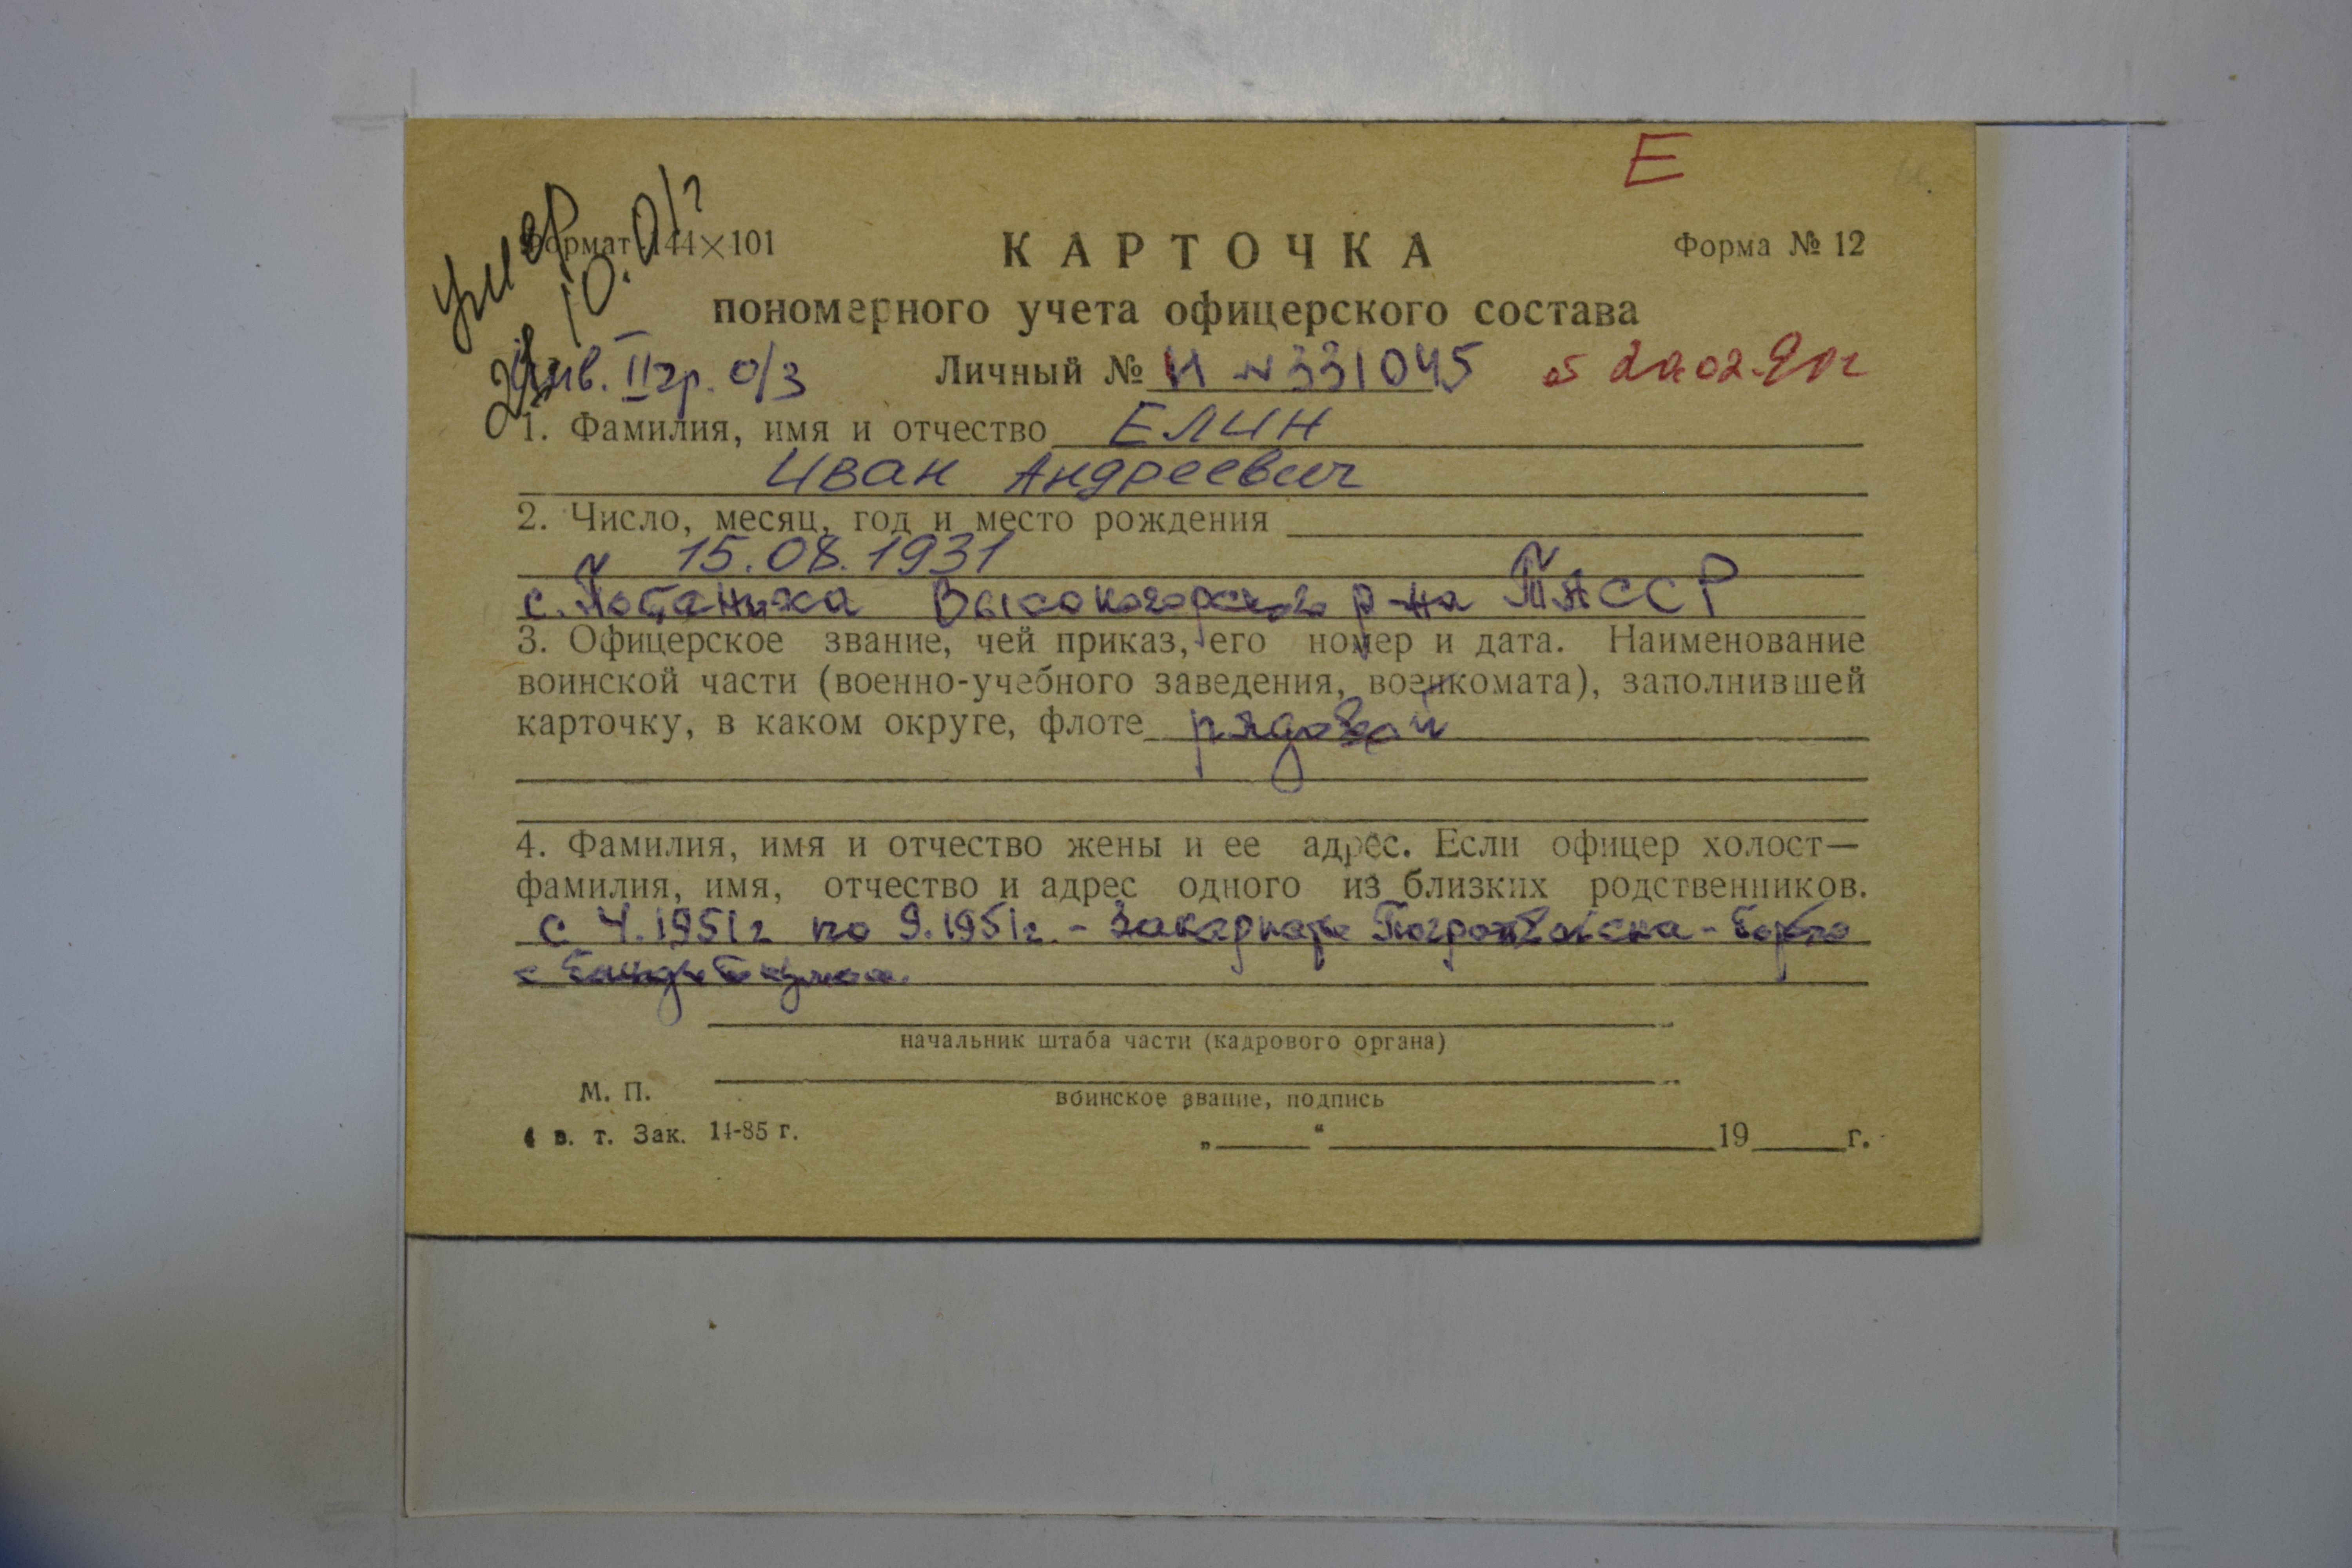 Е
умер
10.01г
Формат 144×101
КАРТОЧКА
Форма № 12
пономерного учета офицерского состава
Инв. II гр. о/з
Личный № И № 331045 от 20.02.90г
1. Фамилия, имя и отчество ЕЛИН
Иван Андреевич
2. Число, месяц, год и место рождения
15.08.1931
с. Потаниха Высокогорского р-на ТАССР
3. Офицерское звание, чей приказ, его номер и дата. Наименование
воинской части (военно-учебного заведения, военкомата), заполнившей
карточку, в каком округе, флоте рядовой
4. Фамилия, имя и отчество жены и ее адрес. Если офицер холост—
фамилия, имя, отчество и адрес одного из близких родственников.
с 4.1951г по 9.1951г. - Погранвойска - борьба
с
начальник штаба части (кадрового органа)
М. П.
воинское звание, подпись
в. т. Зак. 14-85 г.
„ “ 19 г.